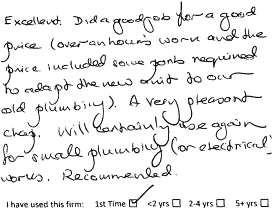 Excellent. Did a good job for a good
price (over an hours work and the
price included some parts required
to adapt the new unit to our
old plumbing). A very pleasant
chap. Will certainly use again
for small plumbing (or electrical)
works. Recommended.
I have used this firm: 1st Time ☑ <2 yrs ☐ 2-4 yrs ☐ 5+ yrs ☐